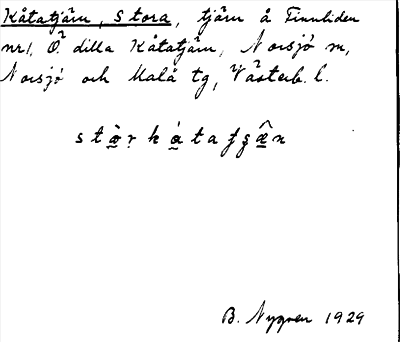 Kåtatjärn, Stora, tjärn å Finnliden
nr 1, Ö. lilla Kåtatjärn, Norsjö sn,
Norsjö och Malå tg, Västerb. l.
B. Nygren 1929